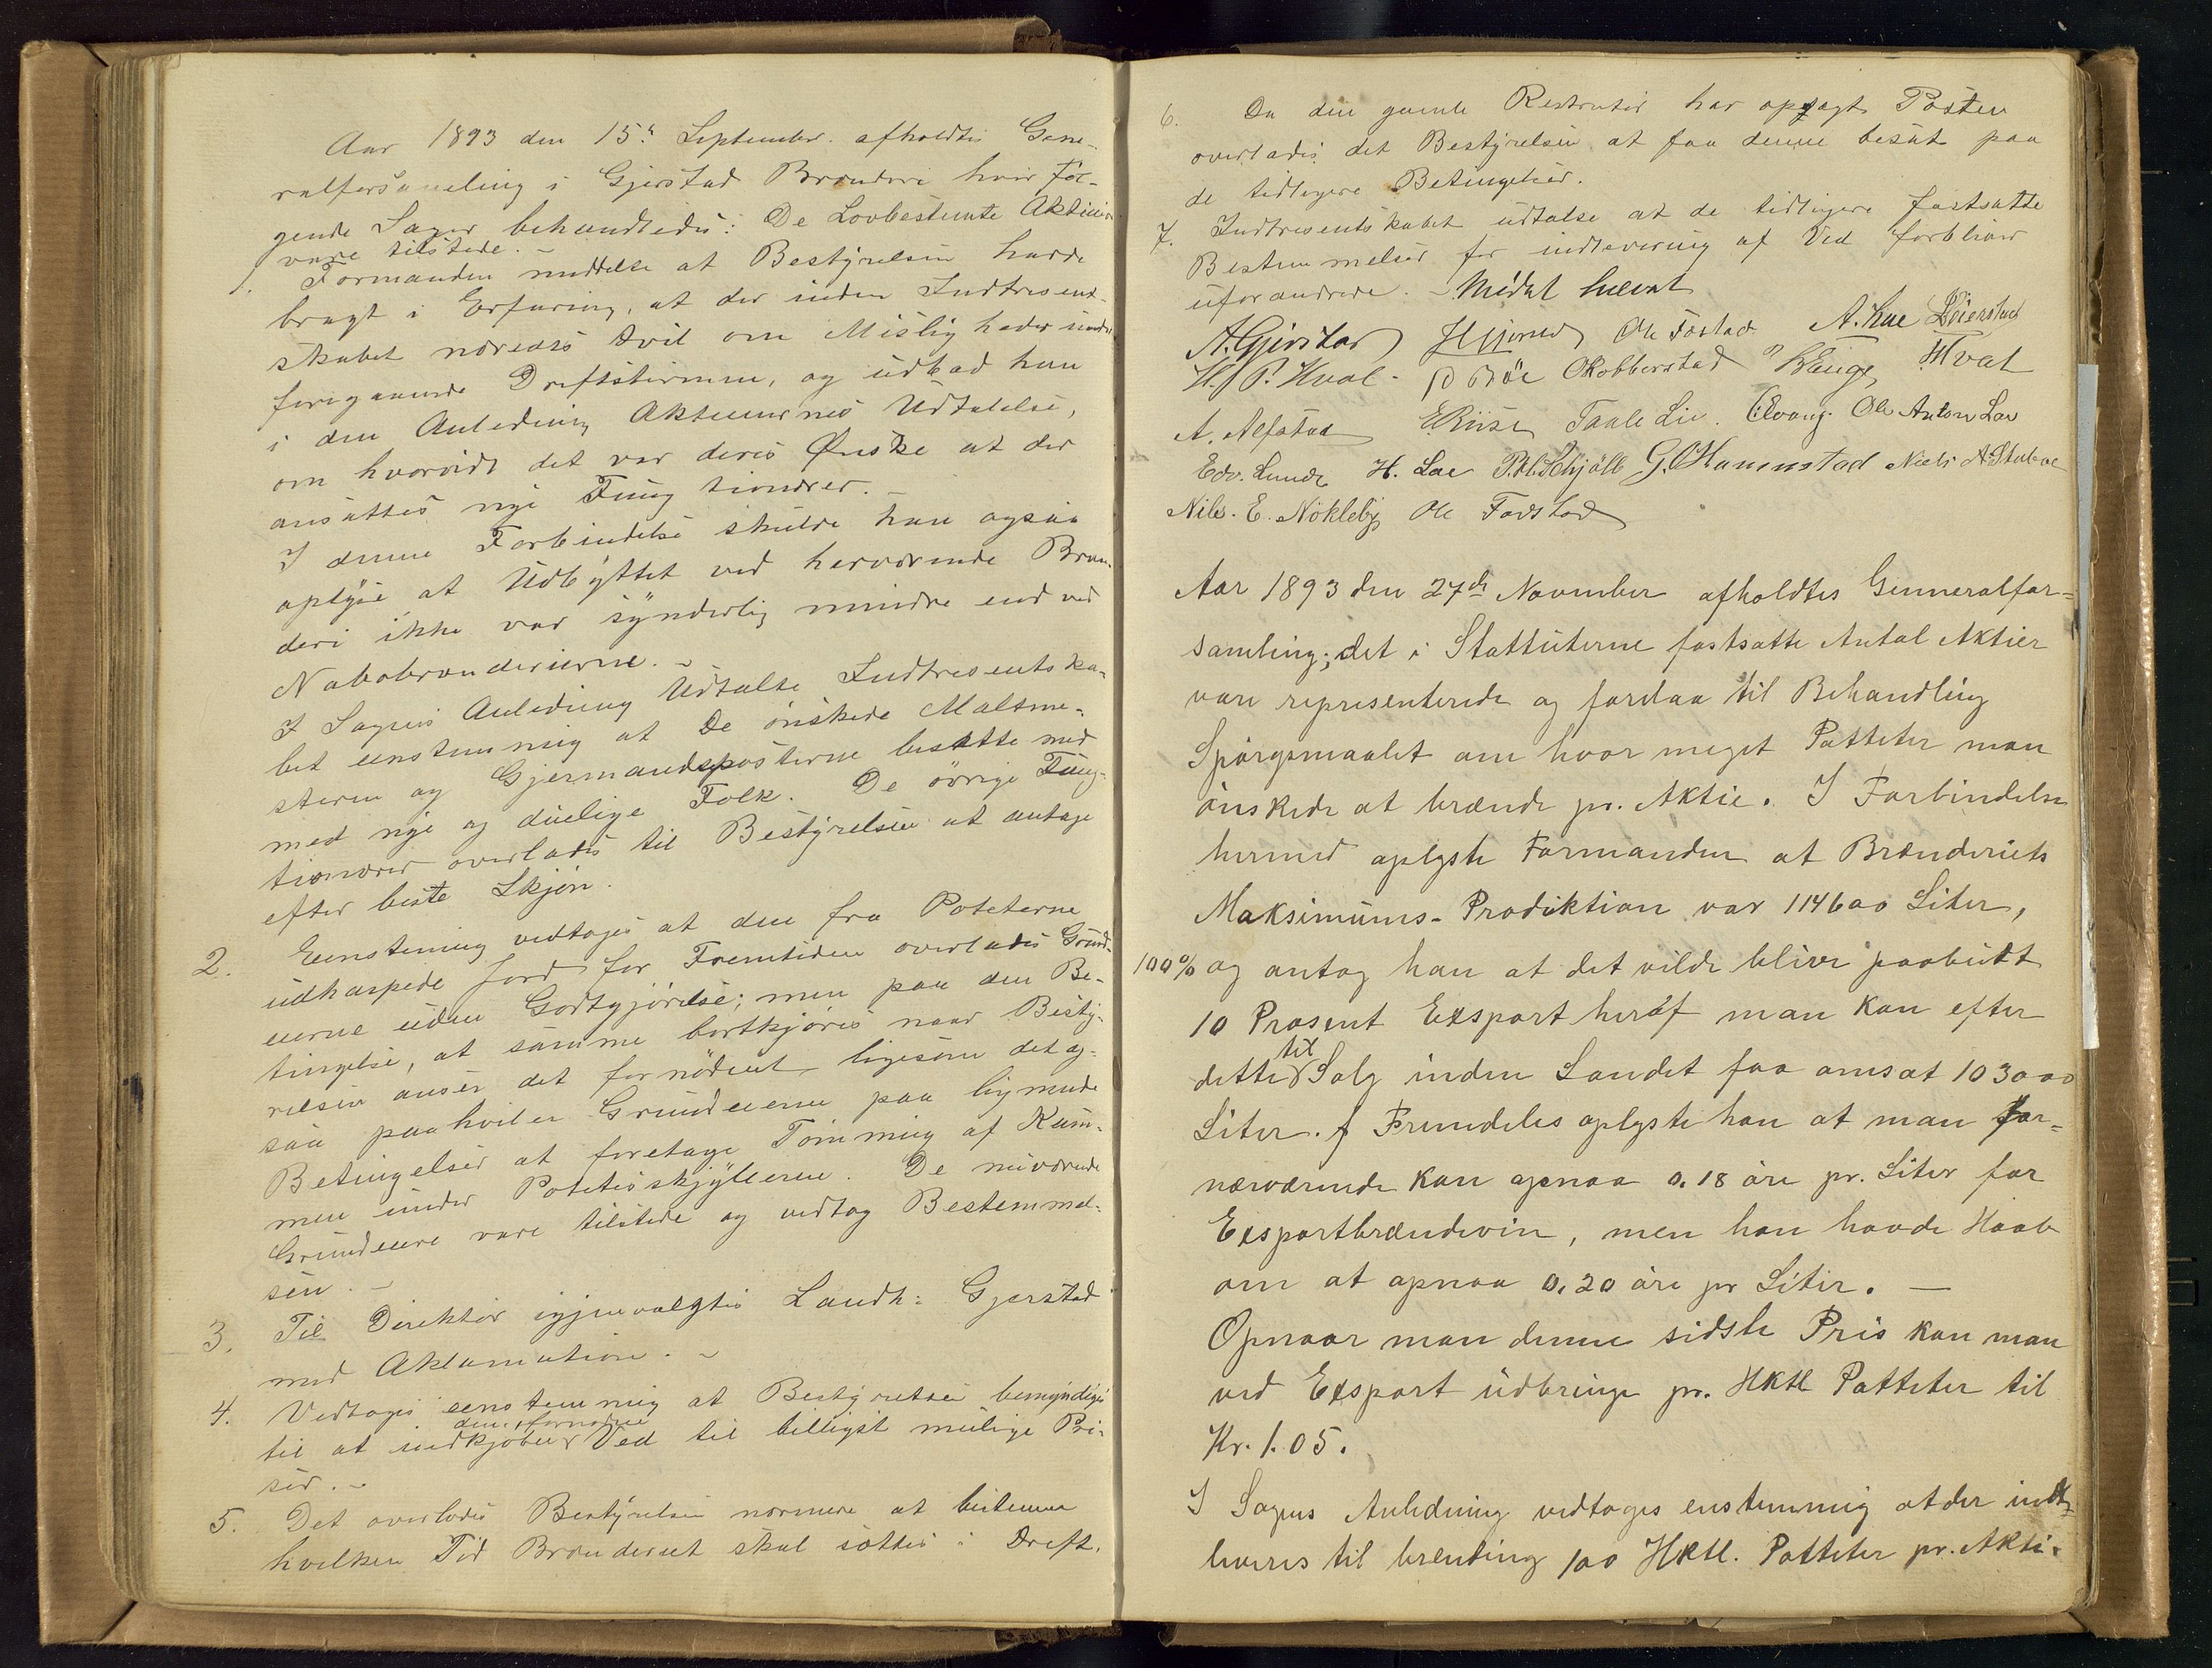 Aar 1893 den 15de September afholdtes Gene-
ralforsamling i Gjerstad Brænderi hvor føl-
gende Sager behandledes: De Lovbestemte Aktier
vare tilstede. –
1. Formanden meddelte at Bestyrelsen havde
bragt i Erfaring, at der inden Indtresent-
skabet næredes tvil om Misligheder under
foregaaende Driftstermin, og udbad han
i den Anledning Aktieeiernes Udtalelse,
om hvorvidt det var deres Ønske at der
ansattes nye Fungtionærer. –
I denne Forbindelse skulde han ogsaa
oplyse at Udbyttet ved herværende Bræn-
deri ikke var synderlig mindre end ved
Nabobrænderierne. –
I Sagens Anledning Udtalte Indtresentska-
bet eenstemmig at De ønskede Maltme-
steren og Gjærmandsposterne besatte med
med nye og duelige Folk. De øvrige Fung-
tionærer overlades til Bestyrelsen at antage
efter beste Skjøn.
2. Eenstemig vedtoges at den fra Poteterne
udharpede Jord for Fremtiden overlades Grund-
eierne uden Godtgjørelse; men paa den Be-
tingelse, at samme bortkjøres naar Besty-
relsen anser det fornødent, ligesom det og-
saa paahviler Grundeierne paa lignende
Betingelser at foretage Tømming af Kum-
men under Potetesskylleren. De nuværende
Grundeiere vare tilstede og vedtog Bestemmel-
sen. –
3. Til Direktør igjenvalgtes Landh: Gjerstad
med Aklamation. –
4. Vedtoges eenstemmig at Bestyrelsen bemyndiges
den fornødne
til at indkjøbe Ved til billigst mulige Pri-
ser. –
5. Det overlodes Bestyrelsen nærmere at bestemme
hvilken Tid Brænderiet skal sættes i Drift.
6. Da den gamle Restratør har opsagt Posten
overlades det Bestyrelsen at faa denne besat paa
de tidligere Betingelser.
7. Indtresentskabet udtalte at de tidligere fastsatte
Bestemmelser for indlevering af Ved forbliver
uforandrede. – Mødet hævet
A. Gjerstad Ole Fostad A. Lae
H. P. Hval. P Bøe O Kobberstad Hval
A. Alfstad E Riise Taale Lie. C Evang. Ole Anton Lae
Edv. Lunde H. Lae P. M. Schjøll G. O Hammstad Niels A Stabo
Nils. E. Nøkleby Ole Fodstad
Aar 1893 den 27de November afholdtes Genneralfor=
samling; det i Stattuterne fastsatte Antal Aktier
vare representerede og forelaa til Behandling
Spørgsmaalet om hvor meget Patteter man
ønskede at brænde pr. Aktie. I Forbindelse
hermed oplyste Formanden at Brænderiets
Maksimums-Prodiktion var 114600 Liter,
100% og antog han at det vilde blive paabudt
10 Prosent Exsport heraf man kan efter
til
dette Salg inden Landet faa omsat 103000
Liter. Fremdeles oplyste han at man for=
nærværende kan opnaa 0.18 øre pr. Liter for
Exsportbrændevin, men han havde Haab
om at opnaa 0.20 øre pr Liter. –
Opnaar man denne sidste Pris kan man
ved Exsport udbringe pr. Hktl Patteter til
Kr. 1.05.
I Sagens Anledning vedtoges enstemmig at der indt
leveres til brenting 100 Hktl. Patteter pr. Akti-